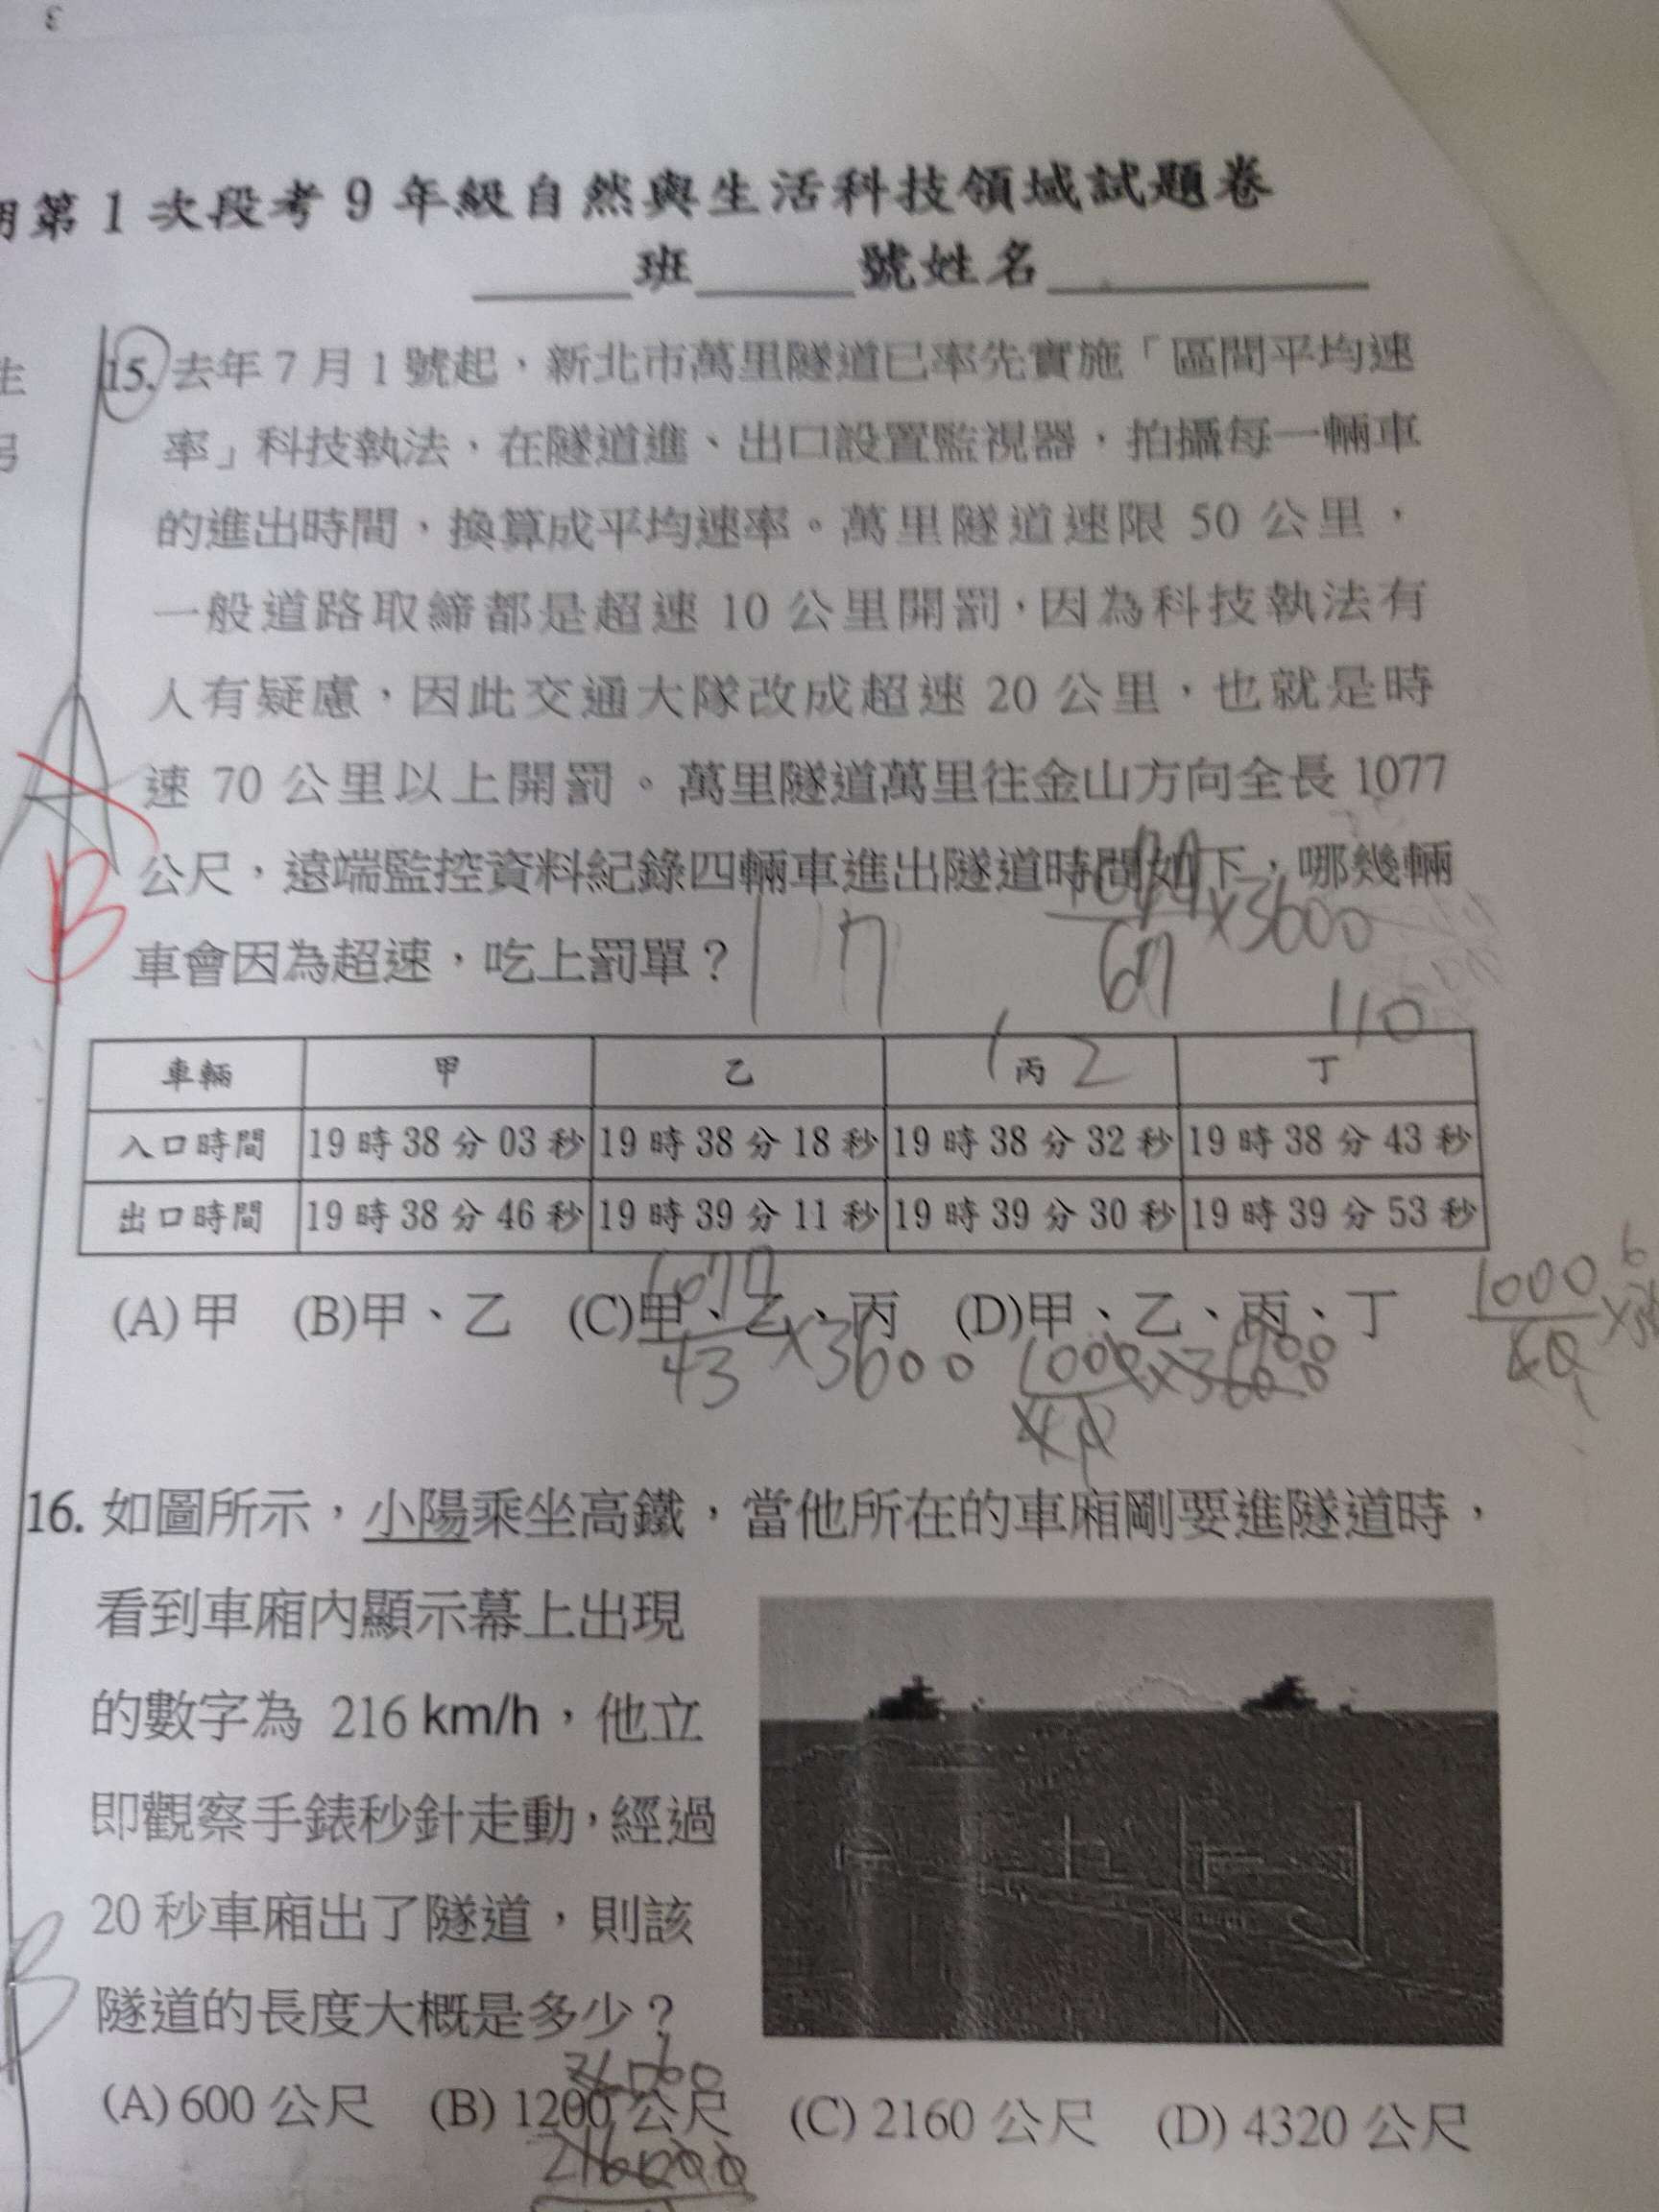 第1次段考9年級自然與生活科技領域試題卷
班 號姓名
15. 去年7月1號起，新北市萬里隧道已率先實施「區間平均速
率」科技執法，在隧道進、出口設置監視器，拍攝每一輛車
的進出時間，換算成平均速率。萬里隧道速限 50 公里，
一般道路取締都是超速 10 公里開罰，因為科技執法有
人有疑慮，因此交通大隊改成超速 20 公里，也就是時
速 70 公里以上開罰。萬里隧道萬里往金山方向全長 1077
A
公尺，遠端監控資料紀錄四輛車進出隧道時間如下，哪幾輛
B
67 ×3600
車會因為超速，吃上罰單？
110
車輛 甲 乙 丙 丁
12
入口時間 19時38分03秒 19時38分18秒 19時38分32秒 19時38分43秒
出口時間 19時38分46秒 19時39分11秒 19時39分30秒 19時39分53秒
(A)甲 (B)甲、乙 (C)甲、乙、丙 (D)甲、乙、丙、丁
1077
43 ×3600
1000
16. 如圖所示，小陽乘坐高鐵，當他所在的車廂剛要進隧道時，
看到車廂內顯示幕上出現
的數字為 216 km/h，他立
即觀察手錶秒針走動，經過
20 秒車廂出了隧道，則該
B
隧道的長度大概是多少？
(A) 600 公尺 (B) 1200 公尺 (C) 2160 公尺 (D) 4320 公尺